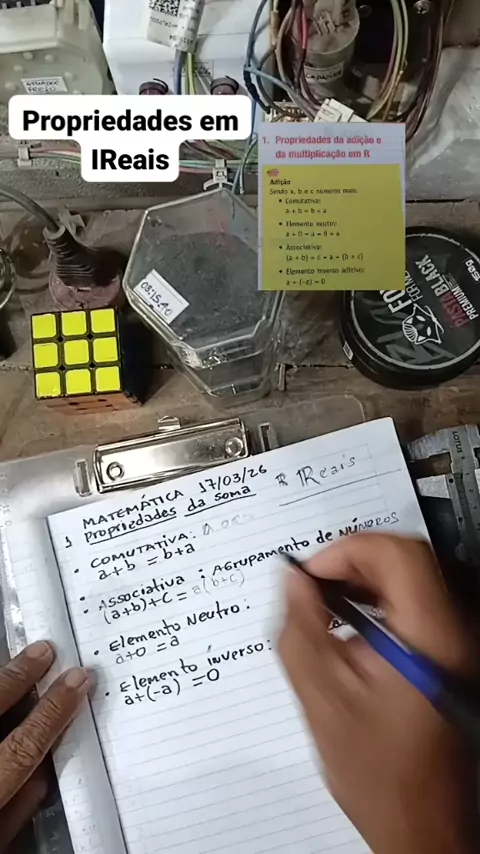 Propriedades em
IReais
1. Propriedades da adição e
da multiplicação em R
Adição
Sendo a, b e c números reais.
• Comutativa:
a + b = b + a
• Elemento neutro:
a + 0 = a = 0 + a
• Associativa:
(a + b) + c = a + (b + c)
• Elemento inverso aditivo:
a + (-a) = 0
PASTA BLACK
PREMIUM
150g
LOTUS
MATEMÁTICA 17/03/26
1 Propriedades da soma
R IReais
• COMUTATIVA:
a+b = b+a
• ASSOCIATIVA: AGRUPAMENTO DE NÚMEROS
(a+b)+C = a(b+c)
• Elemento Neutro:
a+0 = a
• Elemento inverso:
a+(-a) = 0